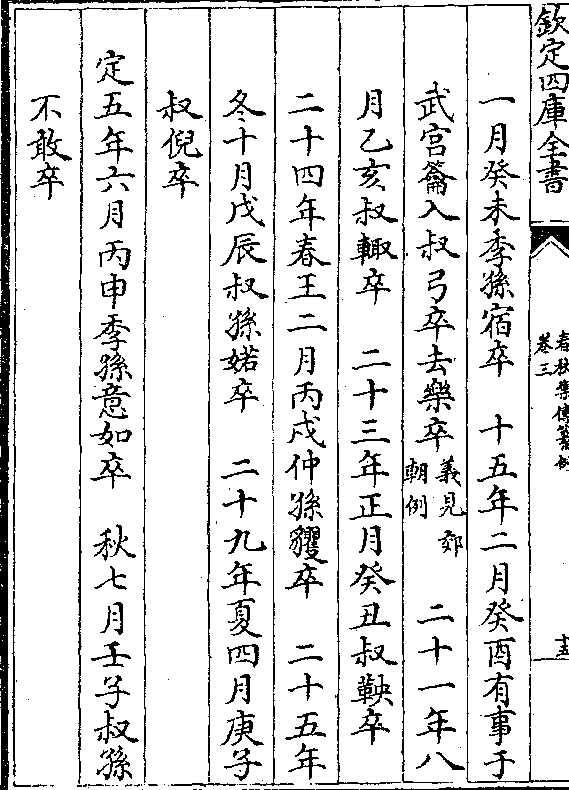 欽定四庫全書
春秋集傳纂例
卷三
十五
一月癸未季孫宿卒　十五年二月癸酉有事于
武宫籥入叔弓卒去樂卒義見郊朝例　二十一年八
月乙亥叔輙卒　二十三年正月癸丑叔鞅卒
二十四年春王二月丙戌仲孫貜卒　二十五年
冬十月戊辰叔孫婼卒　二十九年夏四月庚子
叔倪卒
定五年六月丙申季孫意如卒　秋七月壬子叔孫
不敢卒